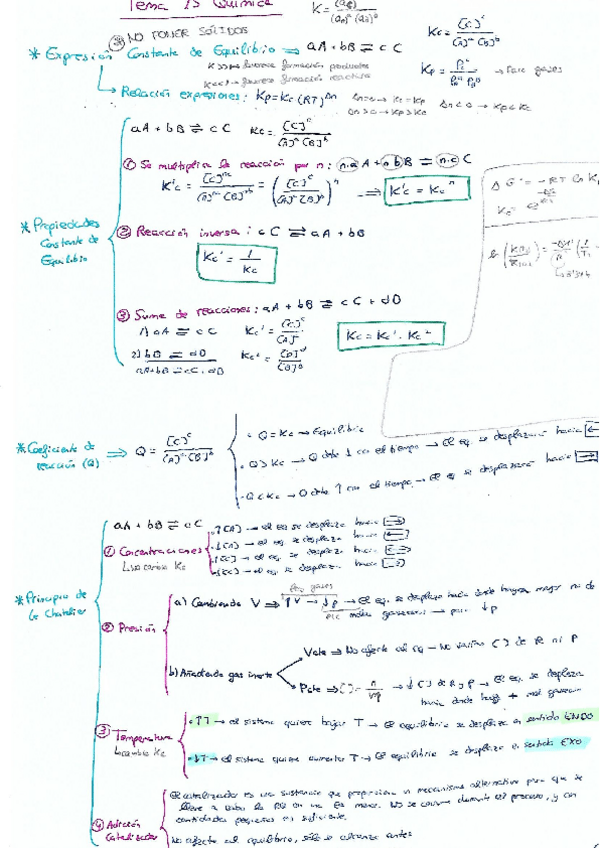 Tema 13 Química
NO PONER SÓLIDOS
* Expresión Constante de Equilibrio ⇒ aA + bB ⇌ cC
Kc = [C]^c / [A]^a [B]^b
K>> favorece formación productos
K<< favorece formación reactivos
→ Fase gases
→ Relación expresiones: Kp = Kc (RT)^Δn
Δn=0 → Kc = Kp
Δn>0 → Kp > Kc
Δn<0 → Kp < Kc
aA + bB ⇌ cC Kc = [C]^c / [A]^a [B]^b
① Se multiplica la reacción por n: n·a A + n·b B ⇌ n·c C
K'c = [C]^nc / [A]^na [B]^nb = ([C]^c / [A]^a [B]^b)^n ⇒ K'c = Kc^n
* Propiedades Constante de Equilibrio
② Reacción inversa: cC ⇌ aA + bB
Kc' = 1 / Kc
③ Suma de reacciones: aA + bB ⇌ cC + dD
1) aA ⇌ cC Kc' = [C]^c / [A]^a
2) bB ⇌ dD Kc² = [D]^d / [B]^b
aA + bB ⇌ cC + dD
Kc = Kc¹ · Kc²
* Coeficiente de reacción (Q) ⇒ Q = [C]^c / [A]^a [B]^b
· Q = Kc → Equilibrio
· Q > Kc → Q debe ↓ con el tiempo → el eq. se desplazará hacia ←
· Q < Kc → Q debe ↑ con el tiempo → el eq. se desplazará hacia →
* Principio de Le Chatelier
aA + bB ⇌ cC
① Concentraciones
↳ no cambia Kc
· ↑[A] → el eq se desplaza hacia →
· ↓[A] → el eq. se desplaza hacia ←
· ↑[C] → el eq. se desplaza hacia ←
· ↓[C] → el eq. se desplaza hacia →
② Presión
a) Cambiando V ⇒ ↑V → ↓p → el eq. se desplaza hacia donde haya mayor nº de moles gaseosos → para ↓p
b) Añadiendo gas inerte
V cte ⇒ No afecta al eq → No varían [] de R ni P
P cte → ↓[] de R y P → el eq. se desplaza hacia donde haya + mol gaseosos
③ Temperatura
↳ cambia Kc
· ↑T → el sistema quiere bajar T → el equilibrio se desplaza en sentido ENDO
· ↓T → el sistema quiere aumentar T → el equilibrio se desplaza en sentido EXO
④ Adición Catalizador
El catalizador es una sustancia que proporciona un mecanismo alternativo para que se
lleve a cabo la RQ en una Ea menor. No se consume durante el proceso, y con
cantidades pequeñas es suficiente.
No afecta al equilibrio, sólo se alcanza antes